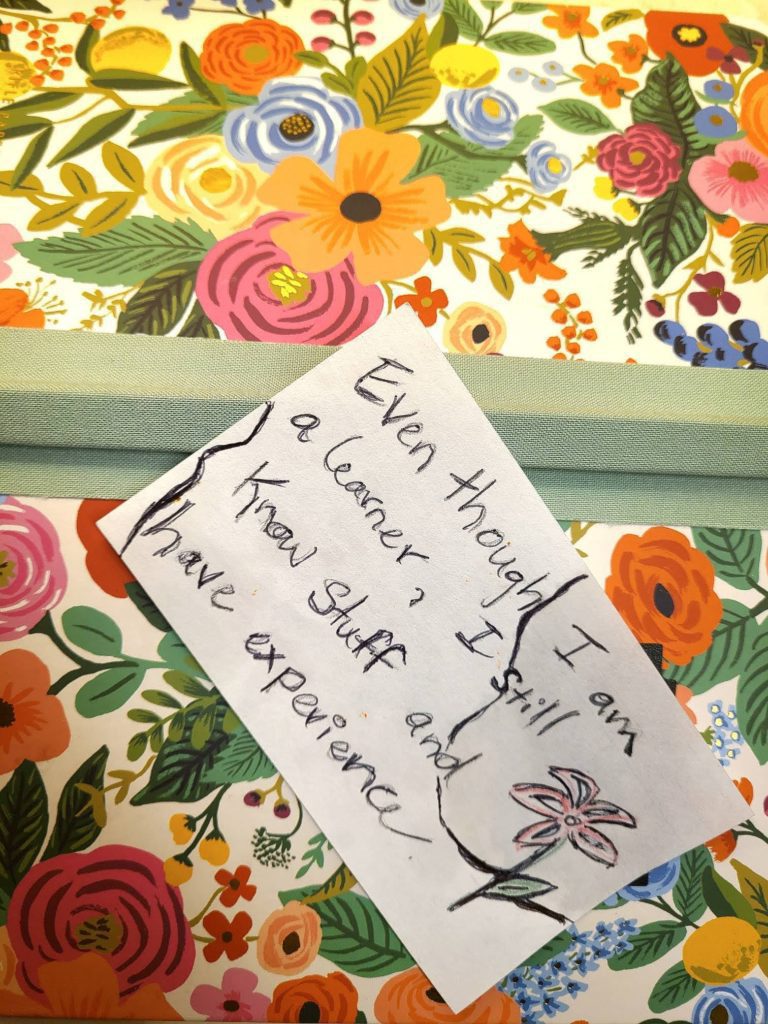 Even though I am
a learner, I still
know stuff and
have experience